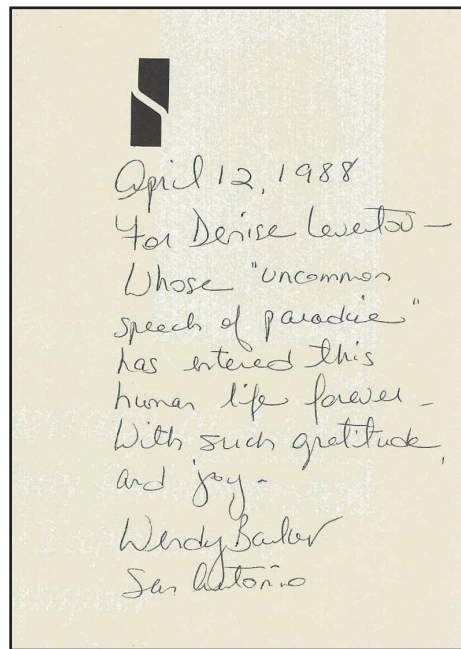 April 12, 1988
For Denise Levertov –
Whose "uncommon
speech of paradise"
has entered this
human life forever –
With such gratitude,
and joy –
Wendy Barker
San Antonio